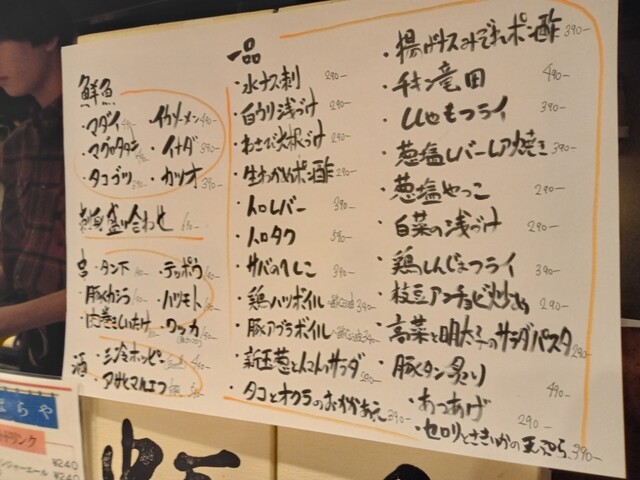 鮮魚
・マダイ
・マグロタタキ
・タコブツ
・イカソーメン 490-
・イナダ 390-
・カツオ 390-
刺身盛り合わせ
・タン下
・豚カシラ
・肉巻きしいたけ
・テッポウ
・ハツモト
・ワッカ
酒
・三冷ホッピー
・アサヒマルエフ
一品
・水ナス刺 290-
・白ウリ浅づけ 290-
・わさび茎根づけ 290-
・生わかめポン酢 290-
・トロレバー 390-
・トロタク 590-
・サバのへしこ 390-
・鶏ハツボイル 390-
・豚アブラボイル 390-
・新玉葱とんこんのサラダ 390-
・タコとオクラのおかかあえ 390-
・揚げナスみぞれポン酢 390-
・チキン竜田 490-
・ししゃもフライ 390-
・葱塩レバーレア焼き 390-
・葱塩やっこ 290-
・白菜の浅づけ 290-
・鶏しんじょフライ 390-
・枝豆アンチョビ炒め 290-
・高菜と明太子のサラダパスタ 290-
・豚タン炙り 490-
・あつあげ 290-
・セロリとさきいかの天ぷら 390-
はらや
¥240
¥240